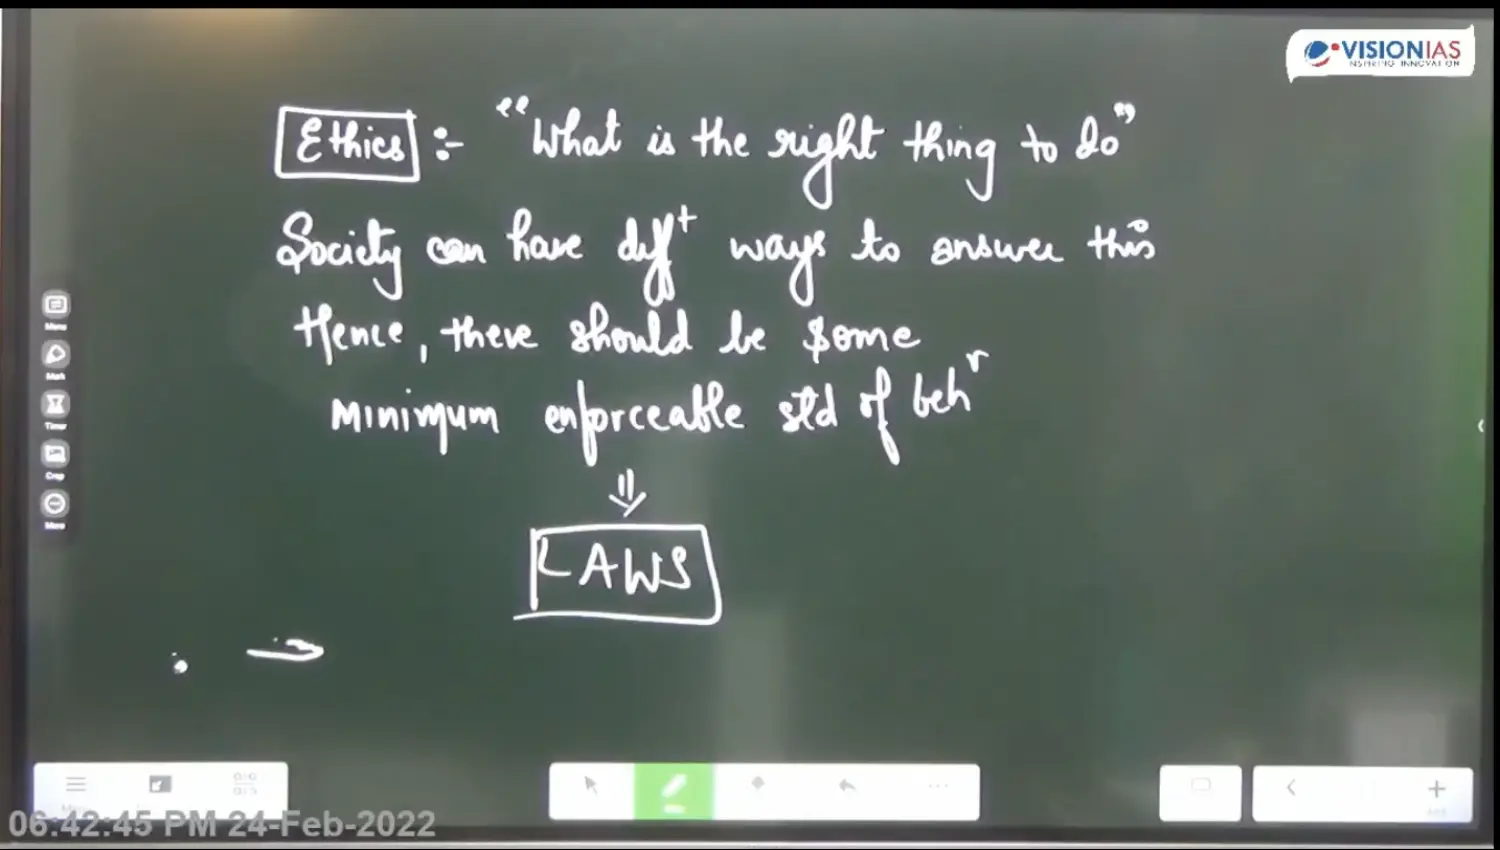 VISIONIAS
INSPIRING INNOVATION
Ethics :- "What is the right thing to do"
Society can have diff^t ways to answer this
Hence, there should be some
minimum enforceable std of beh^r
⇓
LAWS
→
Menu
Mark
Timer
Crop
More
06:42:45 PM 24-Feb-2022